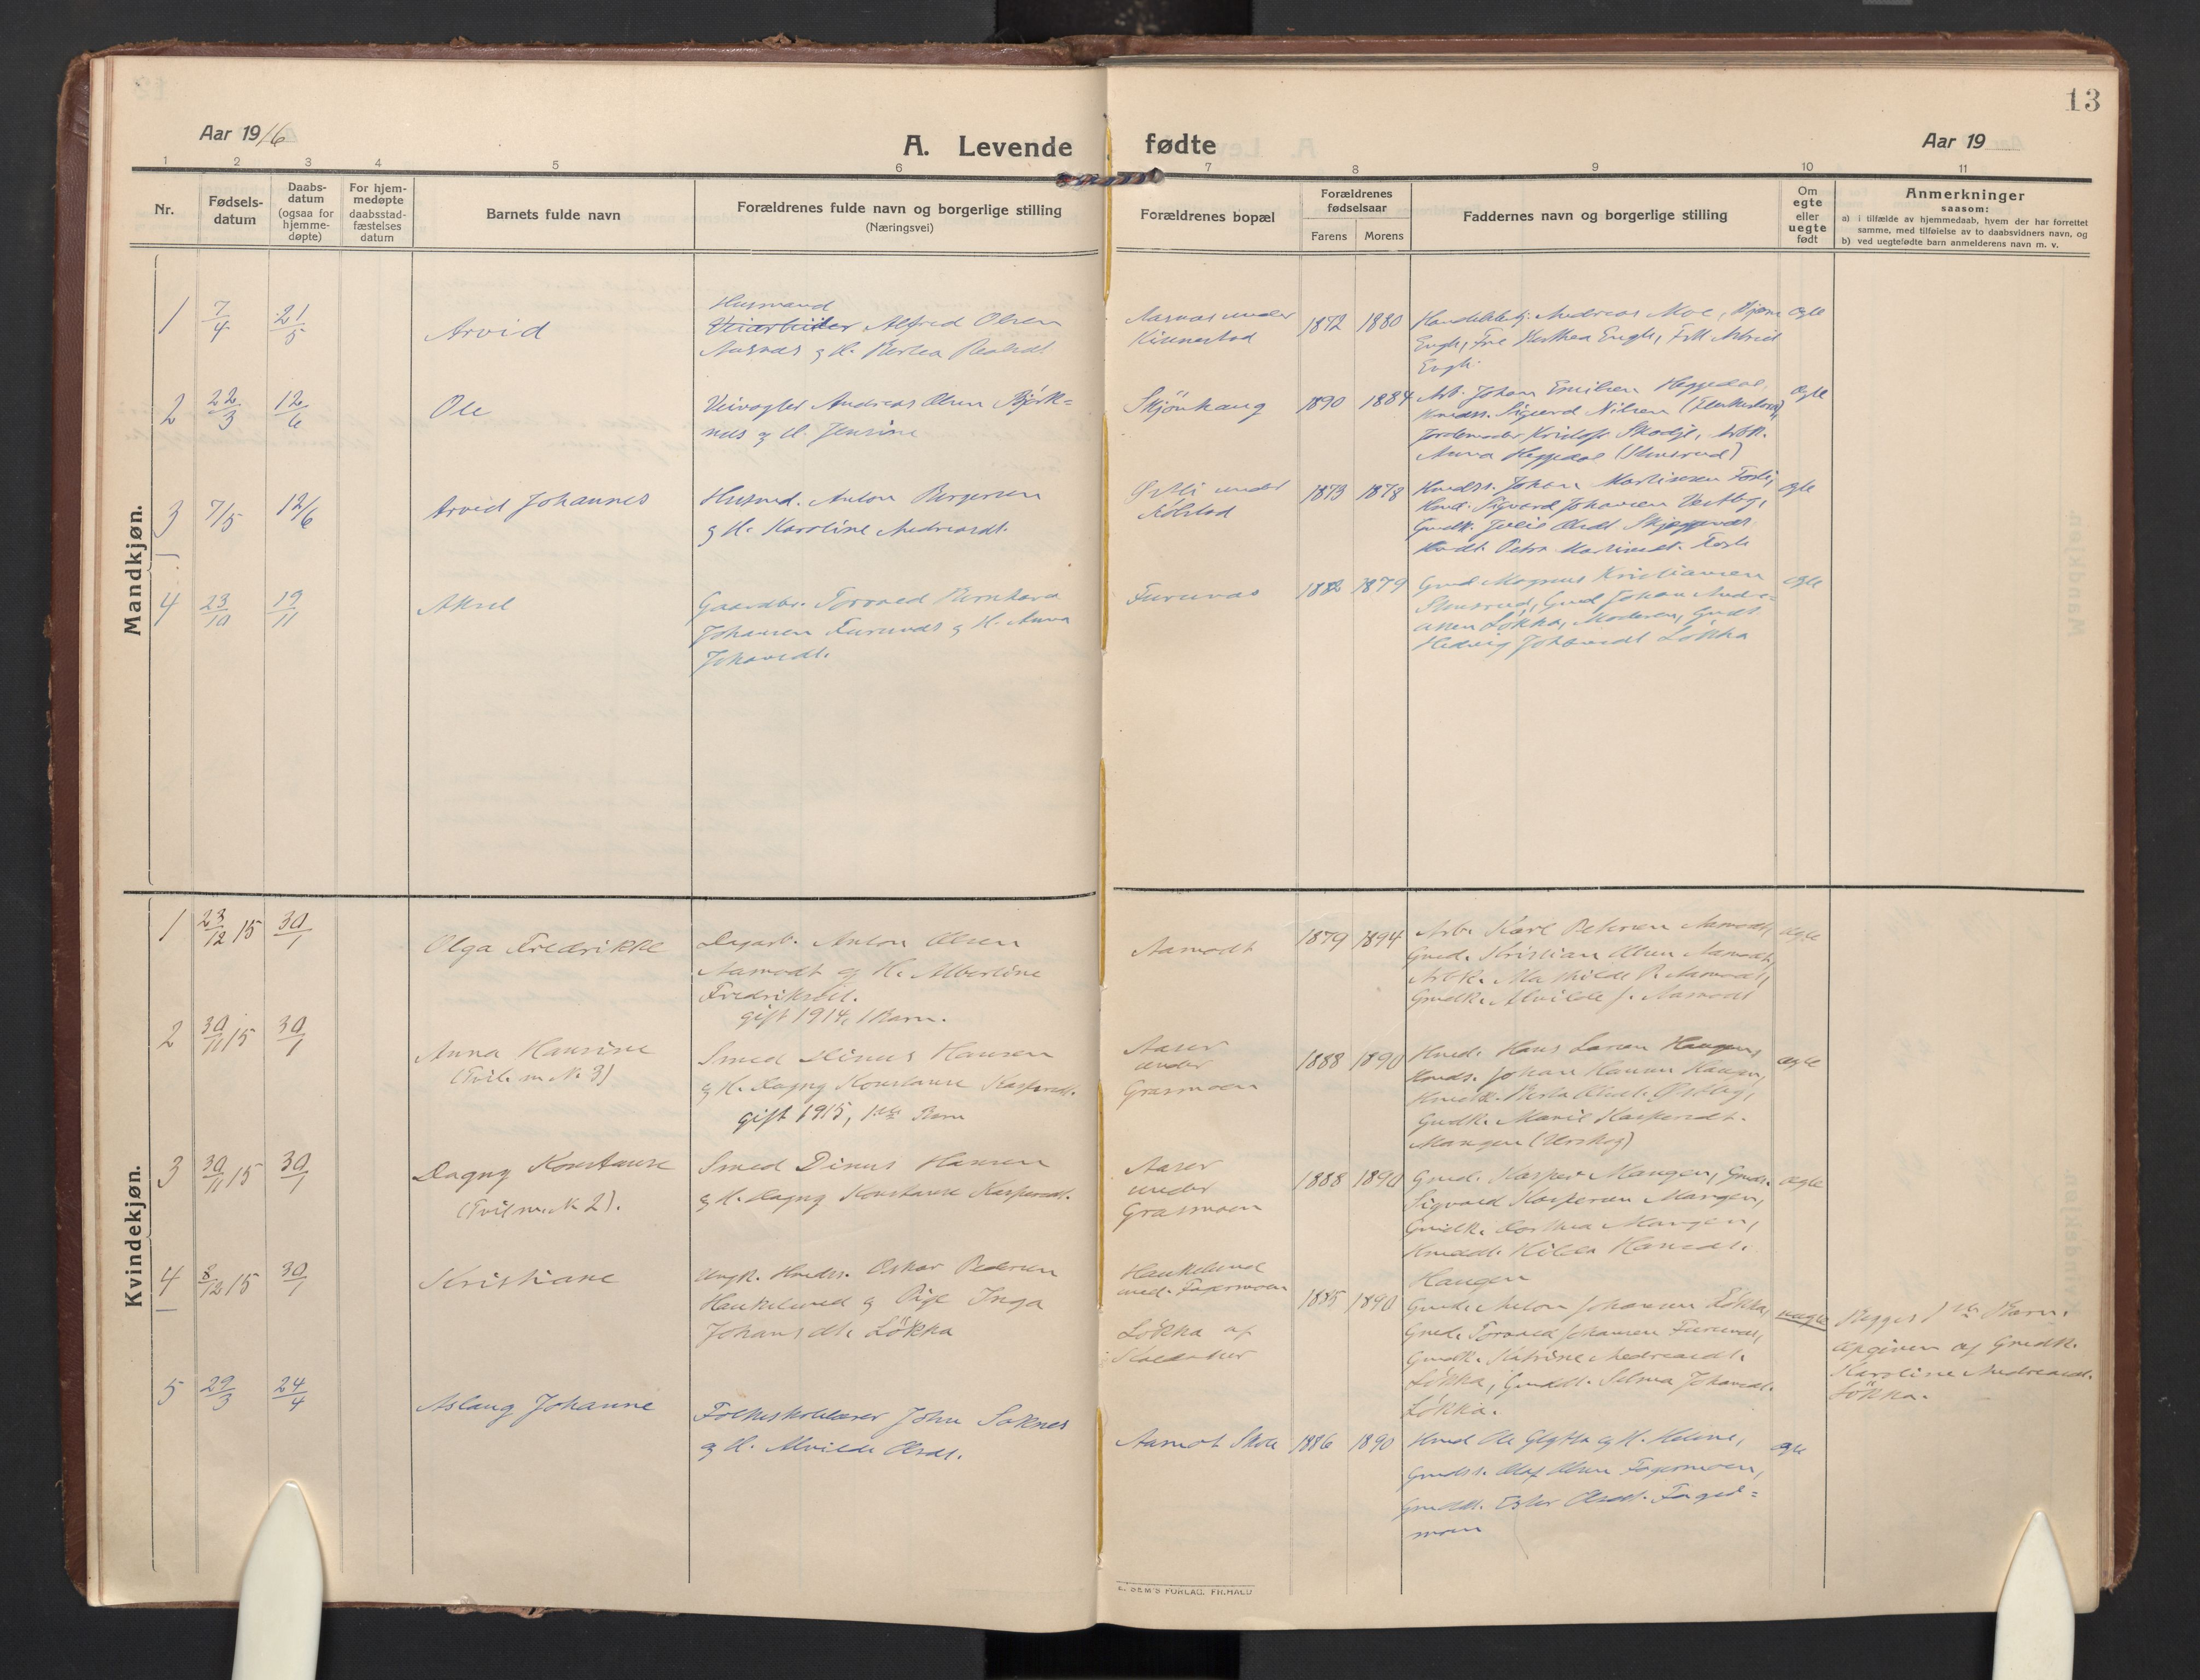 13
Aar 1916
A. Levende fødte
Aar 19
1 2 3 4 5 6 7 8 9 10 11
Nr.
Fødsels-
datum
Daabs-
datum
(ogsaa for
hjemme-
døpte)
For hjem-
medøpte
daabsstad-
fæstelses
datum
Barnets fulde navn
Forældrenes fulde navn og borgerlige stilling
(Næringsvei)
Forældrenes bopæl
Forældrenes
fødselsaar
Farens Morens
Faddernes navn og borgerlige stilling
Om
egte
eller
uegte
født
Anmerkninger
saasom:
a) i tilfælde av hjemmedaab, hvem der har forrettet
samme, med tilføielse av to daabsvidners navn, og
b) ved uegtefødte barn anmelderens navn m. v.
Mandkjøn.
1
7/4
21/5
Arvid
Husmand
Veiarbeider Alfred Olsen
Aasnes & H. Berthea
Aasnes under
Kinnestad
1872 1880
Andreas Moe, Bjarne
Engh, Frk Astrid
Engh.
egte
2
22/3
12/6
Ole
Veivogter Andreas Olsen Bjørk=
nes & H. Jensine
Skjønhaug
1890 1884
Arb. Johan Emilsen Heggedal,
Sigurd Nilsen
Jordemoder Skodje, Arbk.
Anna Heggedal
egte
3
7/5
12/6
Arvid Johannes
Husmd. Anton Bergersen
& H. Karoline Andreasdt.
under
Kolstad
1873 1878
Johan Martinsen
Sigvard Johansen
Julie Olsdt.
Petra Martinsdt.
egte
4
23/10
19/11
Aksel
Gaardbr. Torvald Bernhard
Johansen Furunes & H. Anna
Johansdt.
Furunes
1882 1879
Gmd. Magnus Kristiansen
Gmd Johan Andre=
asen Løkka, Moderen, Gmdt.
Hedvig Johansdt Løkka
egte
Kvindekjøn.
1
23/12 15
30/1
Olga Fredrikke
Dagarb. Anton Olsen
Aamodt og H. Albertine
Fredriksdt.
gift 1914, 1 Barn.
Aamodt
1879 1894
Arb. Karl Petersen Aamodt,
Gmd. Kristian Olsen Aamodt,
Arbk. Mathilde P. Aamodt,
Gmdk. Alvilde J. Aamodt
egte
2
30/11 15
30/1
Anna Hansine
(Tvil. m. N. 3)
Smed Dinus Hansen
& H. Dagny Konstanse Kaspersdt.
gift 1915, 1ste Barn
Aaser
under
Grasmoen
1888 1890
Hmd. Hans Larsen Haugen,
Hmds. Johan Hansen Haugen,
Gmdk. Marie Kaspersdt.
Mangen (Urskog)
egte
3
30/11 15
30/1
Dagny Konstanse
(Tvil m. N. 2).
Smed Dinus Hansen
& H. Dagny Konstanse Kaspersdt.
Aaser
under
Grasmoen
1888 1890
Gmd. Kasper Mangen, Gmds.
Sigvald Kaspersen Mangen,
Gmdk. Dorthea Mangen,
Hmddt. Hilda Hansdt.
Haugen
egte
4
8/12 15
30/1
Kristiane
Ungk. Hmds. Oskar Pedersen
Haukelund & Pige Inga
Johansdt. Løkka
Haukelund
und. Fagermoen
Løkka af
1885 1890
Gmds. Anton Johansen Løkka,
Gmd. Torvald Johansen Furunes,
Gmdk. Katrine Andreasdt.
Løkka, Gmddt. Selma Johansdt.
Løkka.
uegte
Begges 1ste Barn.
Opgiven af Gmdk.
Karoline Andreasdt.
Løkka.
5
29/3
24/4
Aslaug Johanne
Folkeskolelærer John Saknes
& H. Alvilde Olsdt.
Aamot Skole
1886 1890
Hmd Ole & H. Helene,
Gmdss. Olaf Olsen Fagermoen,
Gmddt. Ester Olsdt. Fager=
moen
egte
E. SEM'S FORLAG, FR.HALD